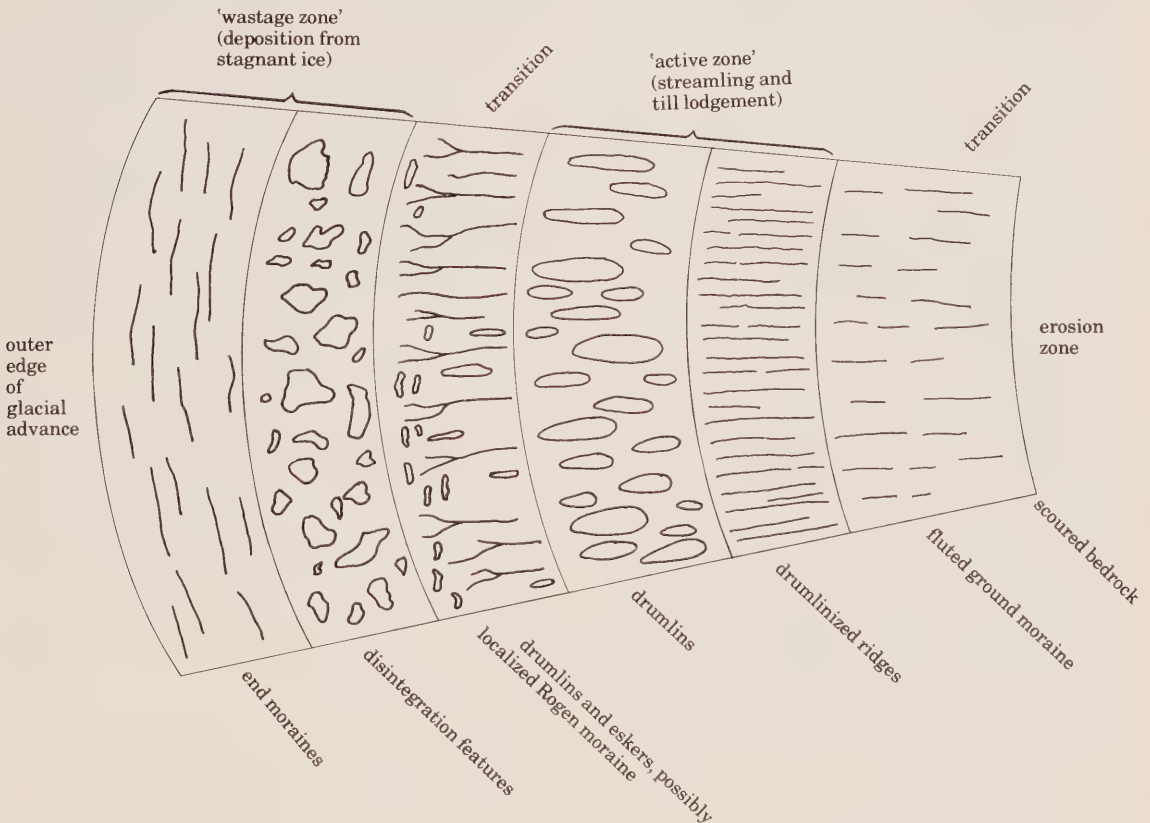 ‘wastage zone’
(deposition from
stagnant ice)
transition
‘active zone’
(streamling and
till lodgement)
transition
outer
edge
of
glacial
advance
erosion
zone
end moraines
disintegration features
drumlins and eskers, possibly
localized Rogen moraine
drumlins
drumlinized ridges
fluted ground moraine
scoured bedrock